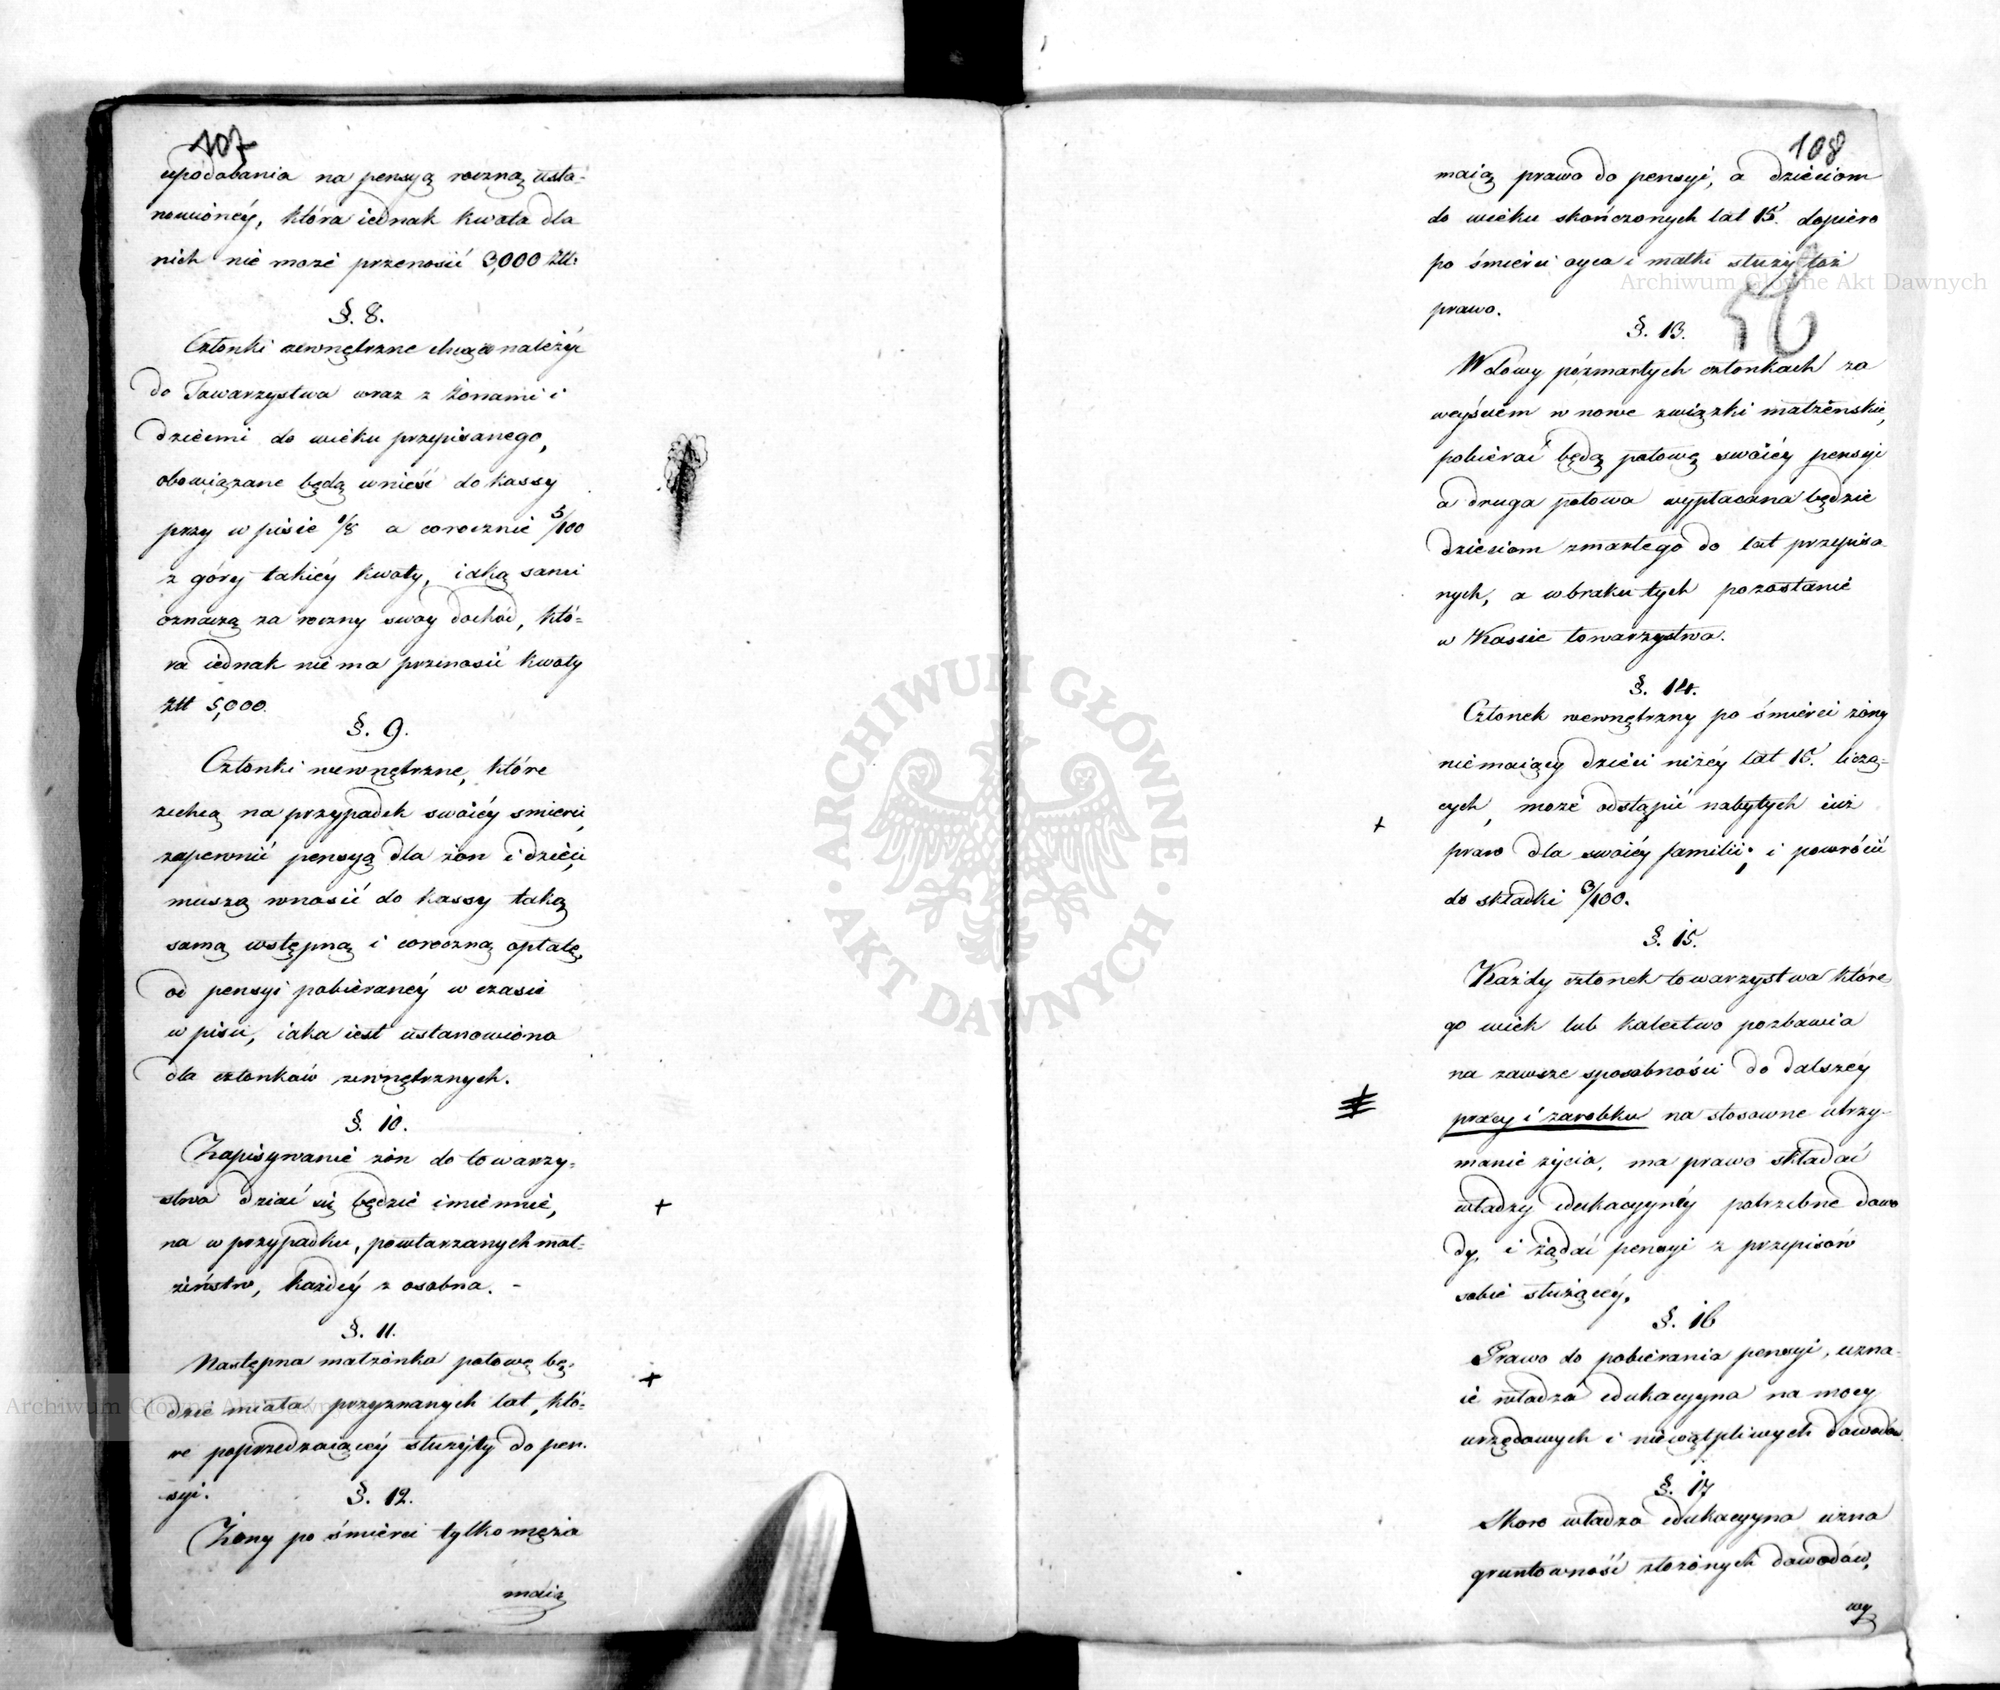 107
upodobania na pensyą roczną usta-
nowioney, która iednak kwota dla
nich nie może przenosić 3,000 Złł:
§. 8.
Członki zewnętrzne chcące należyć
do Towarzystwa wraz z żonami i
dziećmi do wieku przepisanego,
obowiązane będą wnieść do kassy
przy wpisie 1/8 a corocznie 5/100
z góry takiéy kwoty, iaką sami
oznaczą za roczny swoy dochód, któ-
ra iednak nie ma przenosić kwoty
Złł 5,000.
§. 9.
Członki wewnętrzne, które
zechcą na przypadek swoiéy smierci,
zapewnić pensyą dla żon i dzieci,
muszą wnosić do kassy taką
samą wstępną i coroczną opłatę,
od pensyi pobieranéy w czasie
wpisu, iaka iest ustanowiona
dla członków zewnętrznych.
§. 10.
Zapisywanie żon do towarzy-
stwa dziać się będzie imiennie,
na wprzypadku, powtarzanych mał-
żeństw, każdéy z osobna. -
§. 11.
Następna małżonka połowę bę-
dzie miała przyznanych lat, któ-
re poprzedzaiącéy służyły do pen-
syi.
§. 12.
Żony po śmierci tylko męża
maią
108
maią prawo do pensyi, a dzieciom
do wieku skończonych lat 15. dopiero
po śmierci oyca i matki służy toż
prawo.
§. 13.
Wdowy pozmarłych członkach za
weyściem w nowe związki małżeńskie,
pobierać będą połowę swoiéy pensyi
a druga połowa wypłacana będzie
dzieciom zmarłego do lat przepisa-
nych, a wbraku tych pozostanie
w Kassie towarzystwa.
§. 14.
Członek wewnętrzny po śmierci żony
niemaiący dzieci niżéy lat 15. liczą-
cych, może odstąpić nabytych iuż
praw dla swoiéy familii; i powrócić
do składki 3/100.
§. 15.
Każdy członek towarzystwa które-
go wiek lub kalectwo pozbawia
na zawsze sposobności do dalszéy
pracy i zarobku na stosowne utrzy-
manie życia, ma prawo składać
władzy edukacyynéy potrzebne dowo
dy, i żądać pensyi z przepisów
sobie służącéy.
§. 16
Prawo do pobierania pensyi, uzna-
ie władza edukacyyna na mocy
urzędowych i niewątpliwych dowodów
§. 17
Skoro władza edukacyyna uzna
gruntowność złożonych dowodów,
wy
Archiwum Główne Akt Dawnych
Archiwum Główne Akt Dawnych
ARCHIWUM GŁÓWNE
AKT DAWNYCH